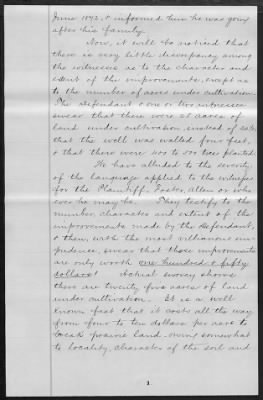 June 1872, & informed him he was going
after his family.
Now, it will be noticed that
there is very little discrepancy among
the witnesses as to the character and
extent of the improvements, except as
to the number of acres under cultivation.
The defendant & one or two witnesses
swear that there were 28 acres of
land under cultivation, instead of
that the well was walled four feet,
& that there were 400 to 500 trees planted.
We have alluded to the severity
of the language applied to the witnesses
for the Plaintiff, Foster, Allen or who
ever he may be. They testify to the
number, character and extent of the
improvements made by the Defendant,
& then, with the most villainous im-
pudence, swear that those improvements
are only worth one hundred & fifty
dollars! Actual survey shows
there are twenty five acres of land
under cultivation. It is a well
known fact that it costs all the way
from four to ten dollars per acre to
break prairie land - owing somewhat
to locality, character of the soil and
3